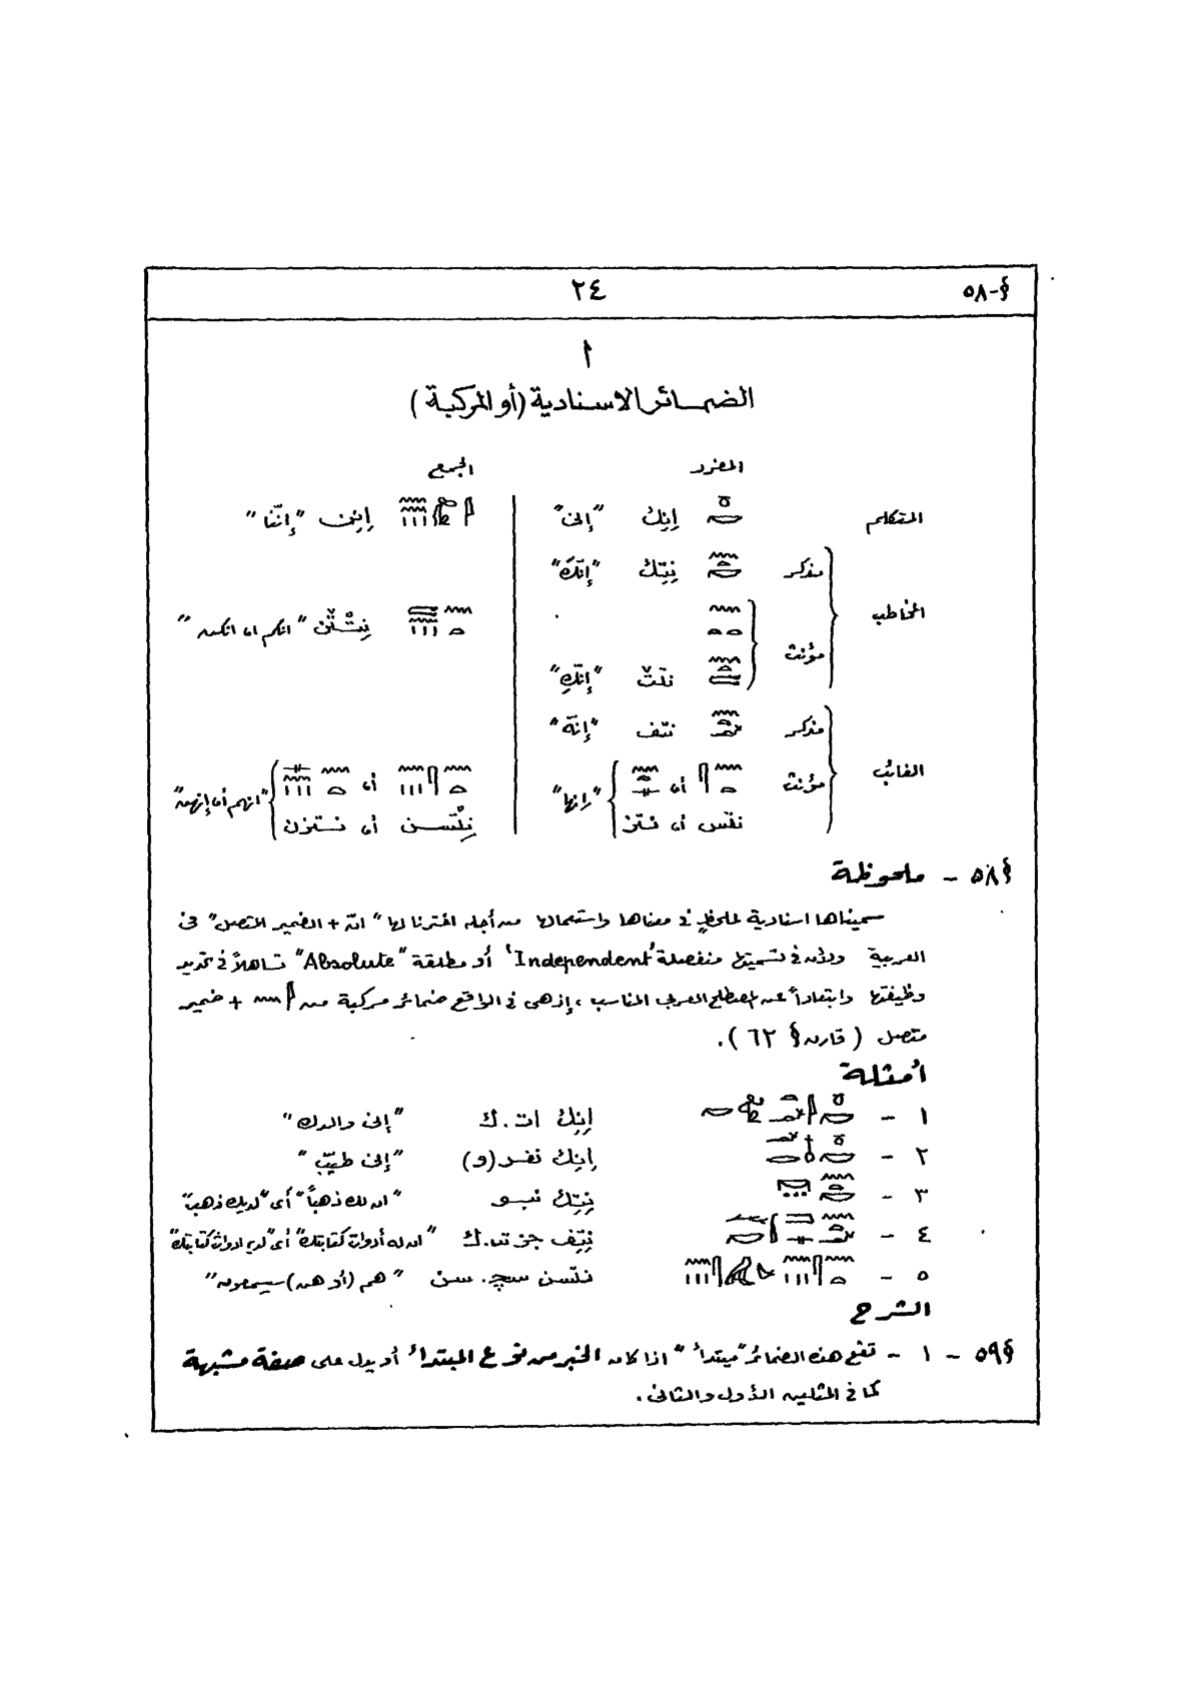 §-٥٨
٢٤
١
الضمائر الاسنادية (أو المركبة)
المفرد الجمع
المتكلم إنِكُ "إنى" إنِن "إنّنا"
مذكر نِتِكُ "إنّكَ"
المخاطب
مؤنث نتْ "إنّكِ" نِتْتْن "انكم او انكن"
مذكر نتف "إنّه"
الغائب
مؤنث "إنها" أو أو "انهم أو إنهن"
نتس أو نتز نِتْسن أو نتزن
§٥٨ - ملحوظة
سميناها اسنادية للحظٍ فى معناها واستعمالها من أجله اخترنا لها "انّ + الضمير المتصل" فى
العربية ولأن فى تسميتها منفصلة "Independent" أو مطلقة "Absolute" تساهلاً فى تحديد
وظيفتها وابتعاداً عن المصطلح العربى المناسب، إذ هى فى الواقع ضمائر مركبة من + ضمير
متصل (قارن § ٦٢).
أمثلة
١ - إنِكُ ات.ك "إنى والدك"
٢ - إنِكُ نفر(و) "إنى طيّب"
٣ - نِتِكُ نبو "ان لك ذهباً" أى "لديك ذهب"
٤ - نِتِف جزت.ك "ان له أدوات كتابتك" أى "لديه ادوات كتابتك"
٥ - نتسن سچ.سن "هم (أو هن) سيسمعون"
الشرح
§٥٩ - ١ - تقع هذه الضمائر "مبتدأ" اذا كان الخبر من نوع المبتدأ أو يدل على صفة مشبهة
كما فى المثلين الأول والثانى.